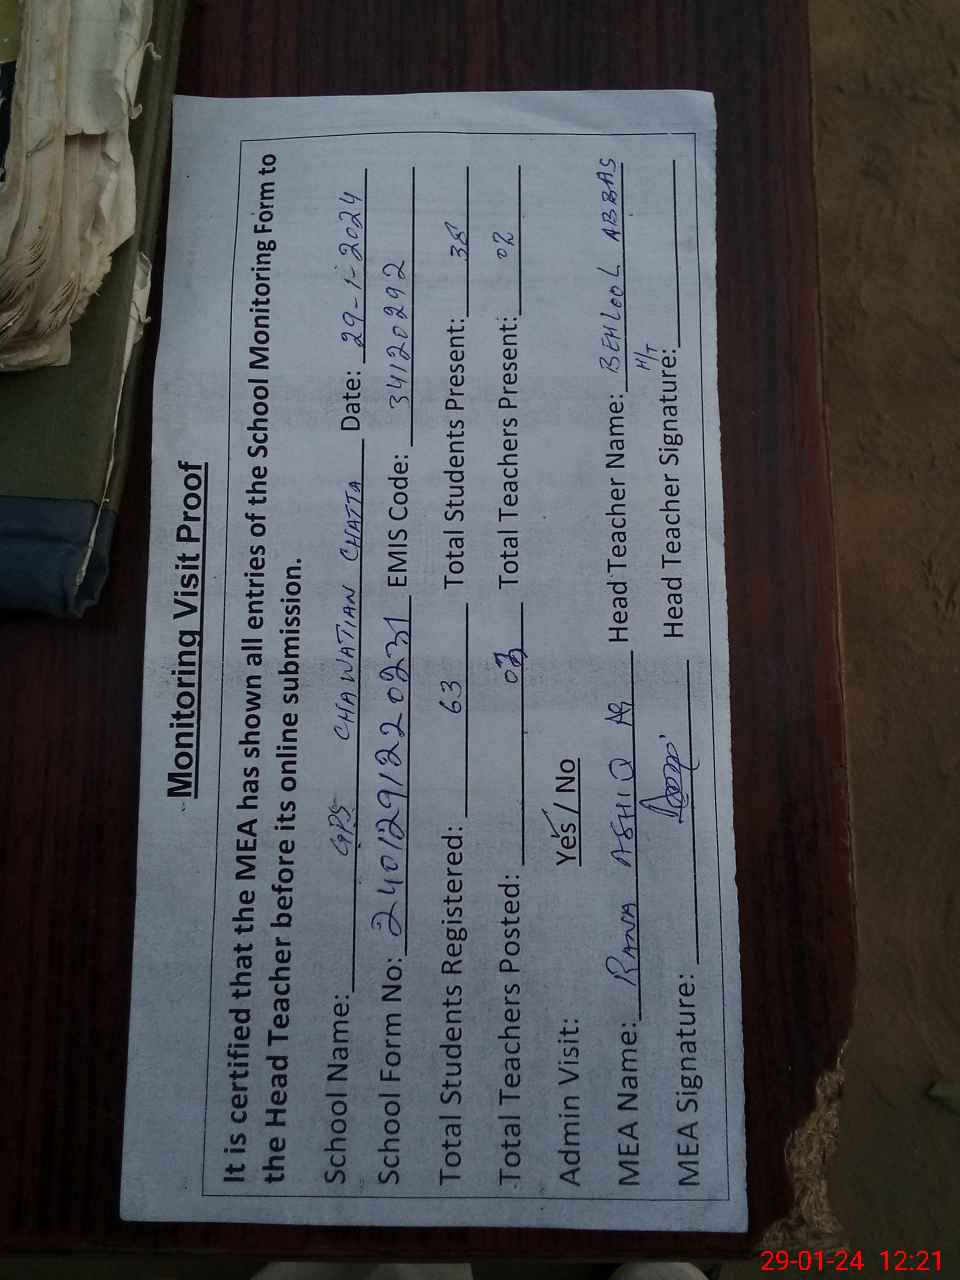 Monitoring Visit Proof
It is certified that the MEA has shown all entries of the School Monitoring Form to
the Head Teacher before its online submission.
School Name: GPS CHAWATIAN CHATTA Date: 29-1-2024
School Form No: 240129122 0231 EMIS Code: 34120292
Total Students Registered: 63 Total Students Present: 38
Total Teachers Posted: 02 Total Teachers Present: 02
Admin Visit: Yes / No
MEA Name: RANA ASHIQ Head Teacher Name: BEHLOOL ABBAS
H/T
MEA Signature: Head Teacher Signature:
29-01-24 12:21